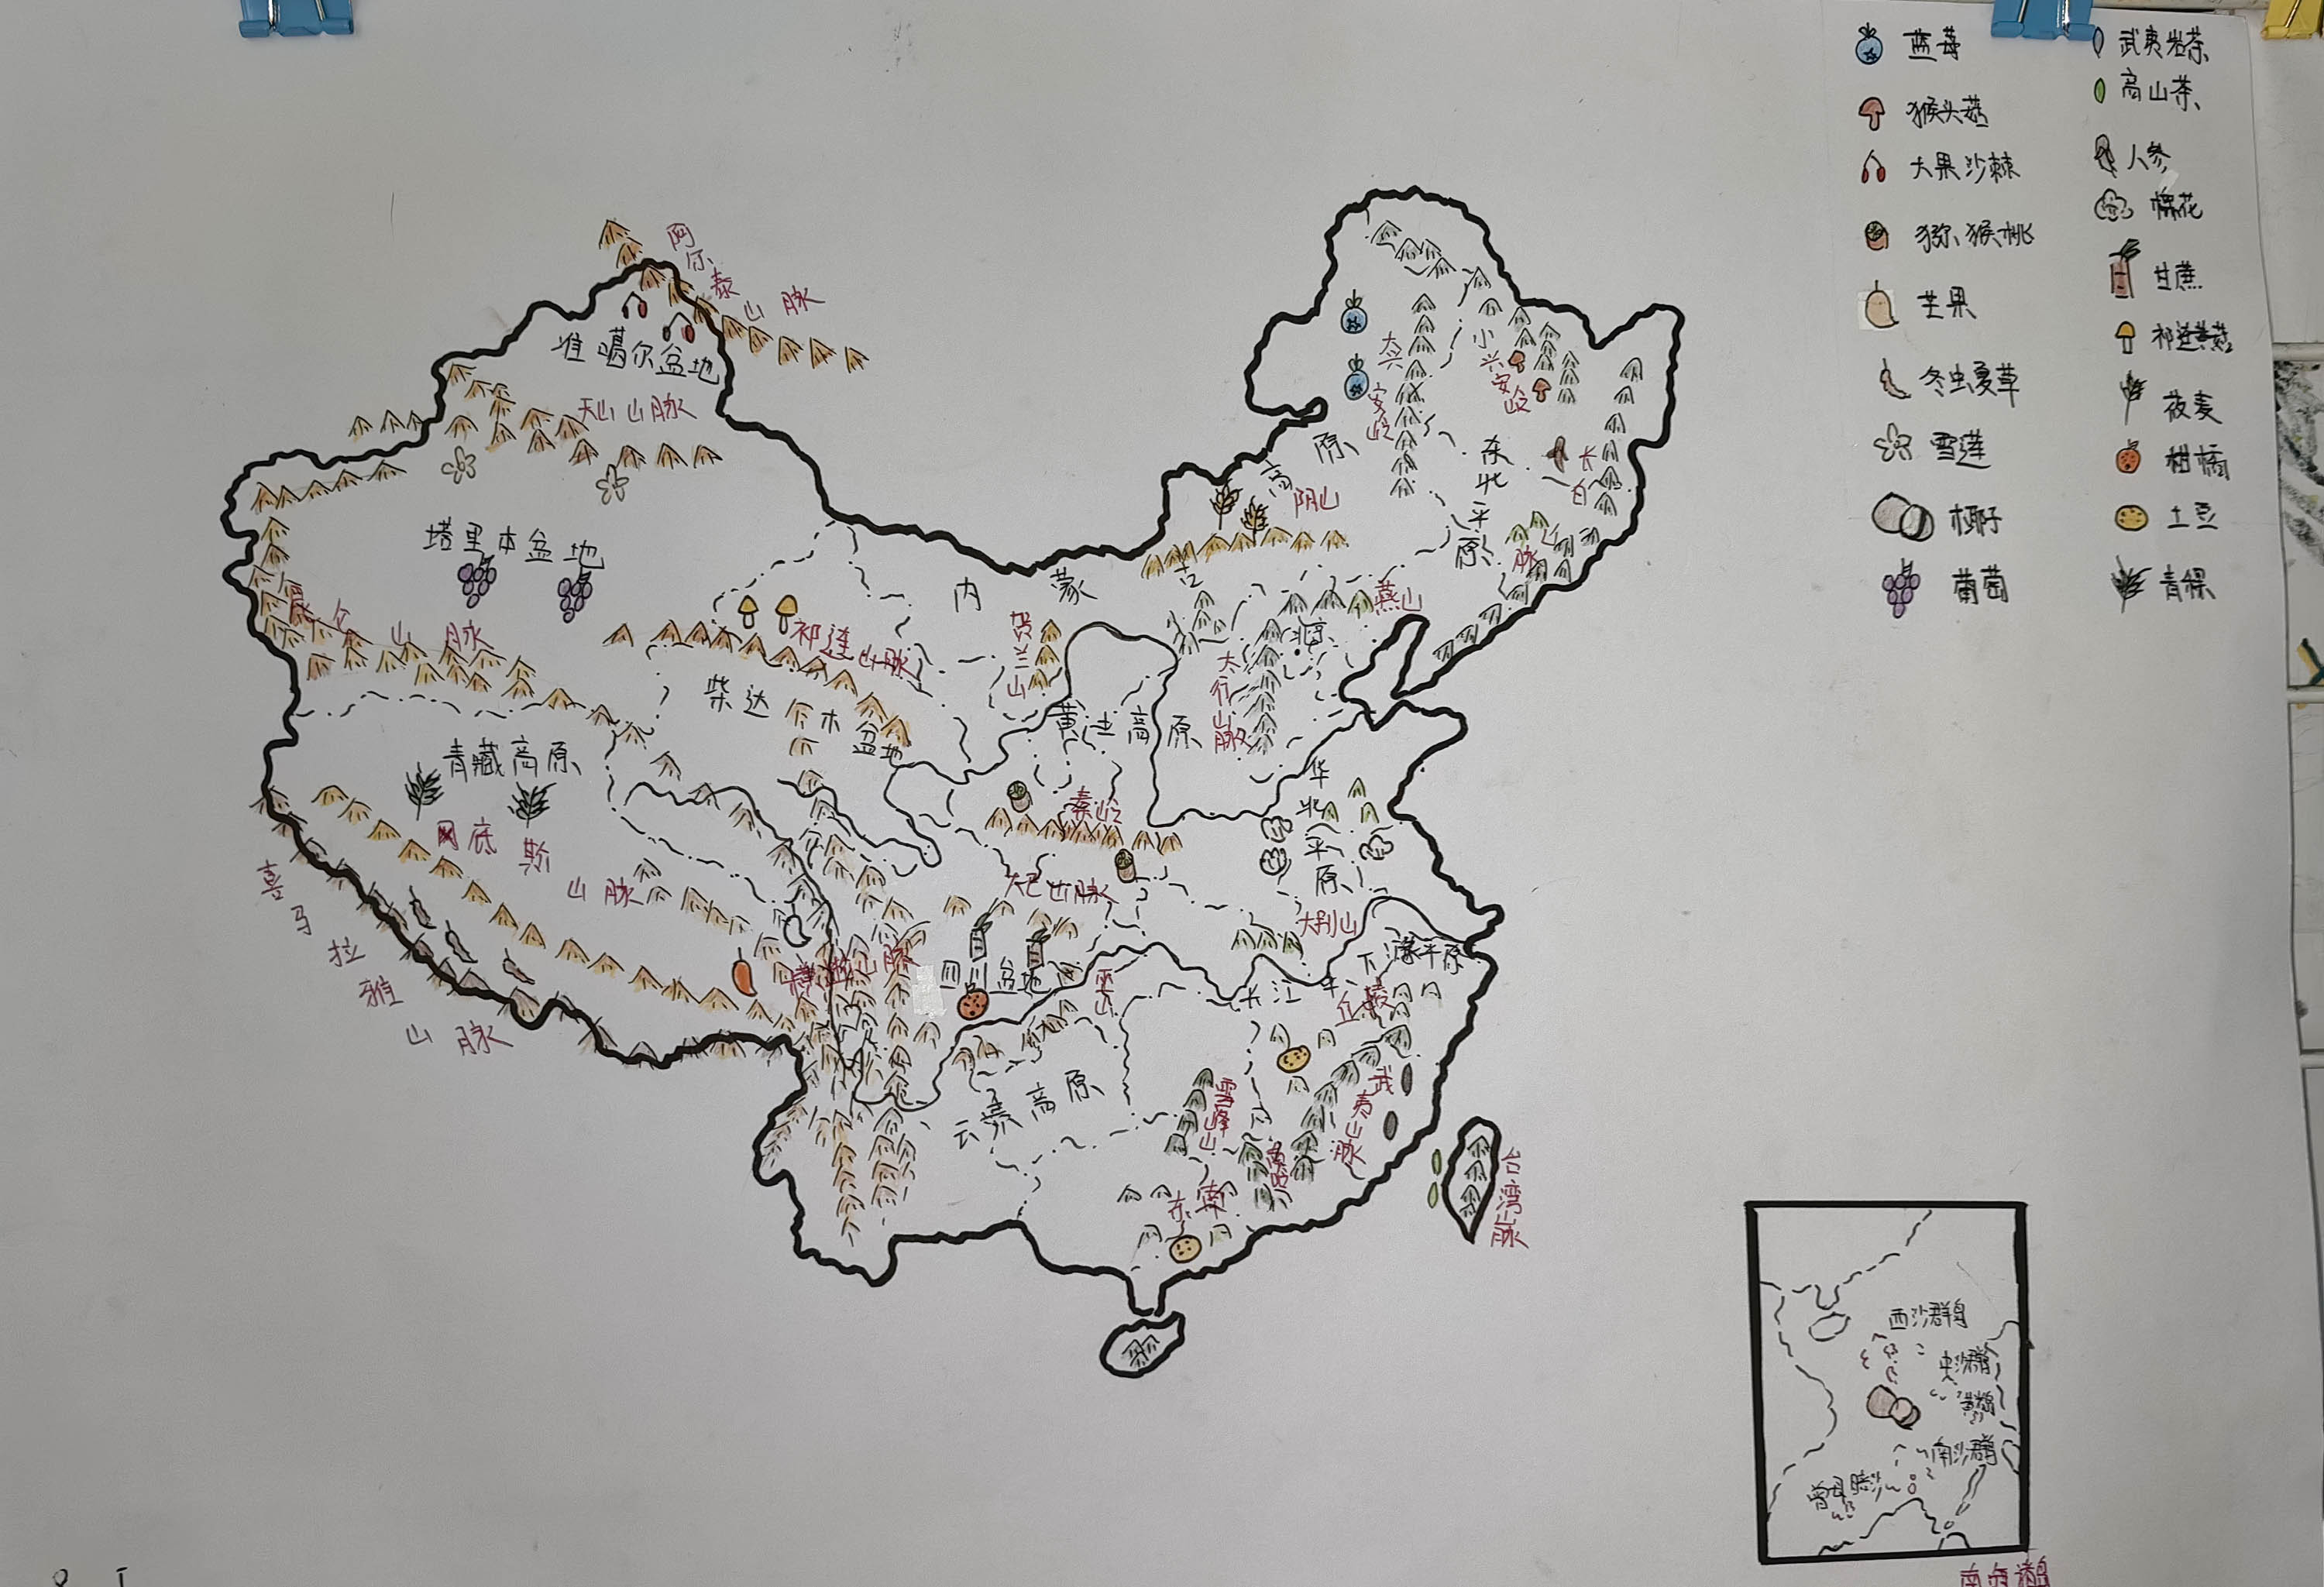 蓝莓
猴头菇
大果沙棘
猕猴桃
芒果
冬虫夏草
雪莲
椰子
葡萄
武夷岩茶
高山茶
人参
棉花
甘蔗
祁连黄菇
莜麦
柑橘
土豆
青稞
阿尔泰山脉
准噶尔盆地
天山山脉
塔里木盆地
昆仑山脉
青藏高原
冈底斯山脉
喜马拉雅山脉
祁连山脉
柴达木盆地
内蒙古高原
阴山
贺兰山
黄土高原
大兴安岭
小兴安岭
东北平原
长白山脉
燕山
北京
太行山脉
华北平原
秦岭
大巴山脉
大别山
四川盆地
巫山
横断山脉
长江中下游平原
云贵高原
雪峰山
武夷山脉
南岭
东南丘陵
台湾山脉
西沙群岛
中沙群岛
黄岩岛
南沙群岛
曾母暗沙
南海诸岛